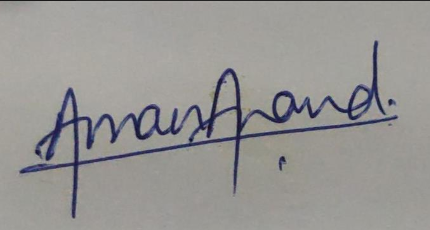 Aman Anand.